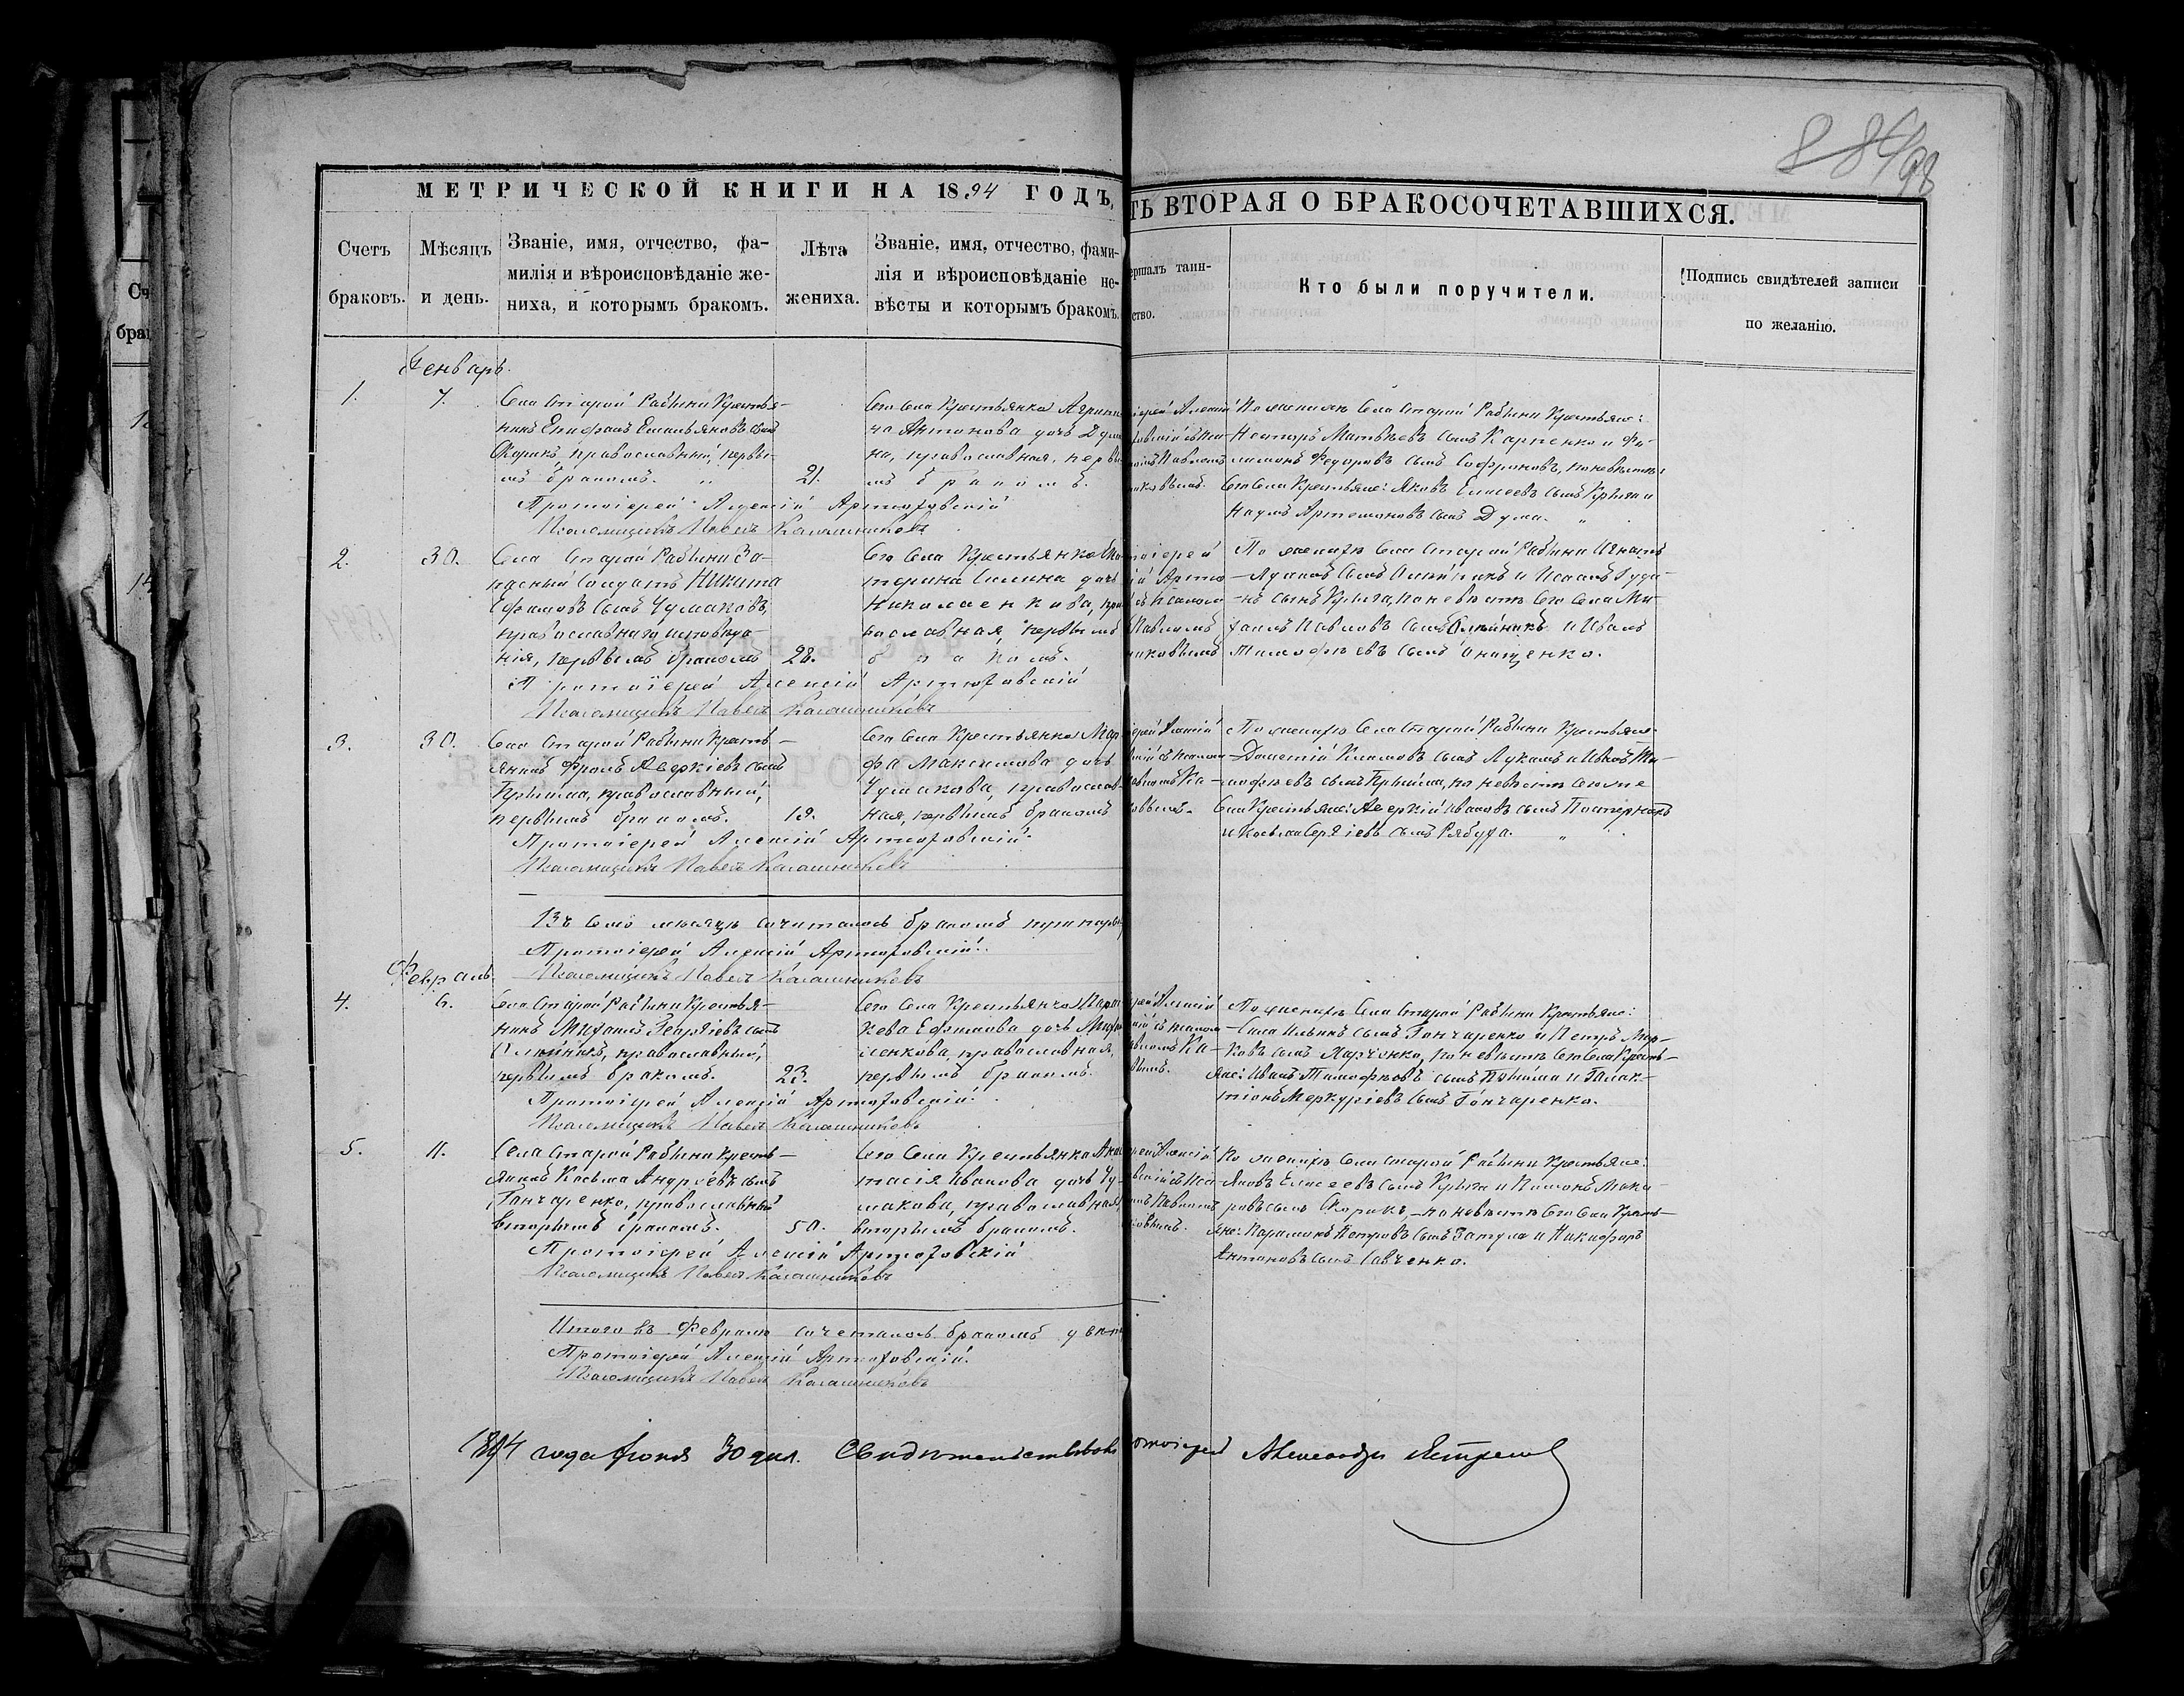 884/93
МЕТРИЧЕСКОЙ КНИГИ НА 1894 ГОДЪ,
ТЬ ВТОРАЯ О БРАКОСОЧЕТАВШИХСЯ.
Счетъ браковъ.
Мѣсяцъ и день.
Званіе, имя, отчество, фа-
милія и вѣроисповѣданіе же-
ниха, и которымъ бракомъ.
Лѣта жениха.
Званіе, имя, отчество, фами-
лія и вѣроисповѣданіе не-
вѣсты и которымъ бракомъ.
ершалъ таин-
ство.
Кто были поручители.
Подпись свидѣтелей записи
по желанію.
Генварь.
1.
7.
Села Старой Рабыни Крестья-
нинъ Епифанъ Емельяновъ сынъ
Скорикъ, православный, первы-
мъ бракомъ. "
21.
Того села Крестьянка Агрипи
на Антонова дочь Дума
на, православная, первы
мъ бракомъ.
ерей Алексій
По женихѣ Села Старой Рабыни Крестьяне:
Несторъ Матвѣевъ сынъ Карпенко и Фи-
лимонъ Федоровъ сынъ Софроновъ, по невѣстѣ
Того Села Крестьяне: Яковъ Елисеевъ сынъ Крыга и
Наумъ Артемоновъ сынъ Дума. "
Протоіерей Алексій Артюховскій
Псаломщикъ Павелъ Калашниковъ
2.
30.
Села Старой Рабыни За-
пасный Солдатъ Никита
Ефимовъ сынъ Чумаковъ,
православнаго исповѣда-
нія, первымъ бракомъ
28.
Того Села Крестьянка Ека
терина Силина дочь
Николаенкова, пра
вославная, первымъ
бракомъ.
По женихѣ Села Старой Рабыни Игнатъ
сынъ Олейникъ и Исаакъ Гура-
въ сынъ Крыга, по невѣстѣ Того Села Ми-
хаилъ Павловъ сынъ Олейникъ и Иванъ
Тимофѣевъ сынъ Онищенко.
Протоіерей Алексій Артюховскій
Псаломщикъ Павелъ Калашниковъ
3.
30.
Села Старой Рабыни Кресть-
янинъ Фролъ Аверкіевъ сынъ
Прыйма, православный,
первымъ бракомъ.
19.
Того Села Крестьянка Мар
фа Максимова дочь
Чумакова, православ-
ная, первымъ бракомъ
По женихѣ Села Старой Рабыни Крестьяне:
Дометій Климовъ сынъ Лукашъ и Яковъ Ти-
мофѣевъ сынъ Прыйма, по невѣстѣ Того же
Села Крестьяне: Аверкій Ивановъ сынъ
и Косьма Сергіевъ сынъ Рябуха. "
Протоіерей Алексій Артюховскій.
Псаломщикъ Павелъ Калашниковъ
Въ семъ мѣсяцѣ сочеталось бракомъ три пары
Протоіерей Алексій Артюховскій.
Псаломщикъ Павелъ Калашниковъ
Февраль.
4.
6.
Села Старой Рабыни Крестья-
нинъ Михаилъ Георгіевъ сынъ
Олейникъ, православный,
первымъ бракомъ.
23.
Того Села Крестьянка Парас
кева Ефимова дочь
православная,
первымъ бракомъ.
По женихѣ Села Старой Рабыни Крестьяне:
Сила Ильинъ сынъ Гончаренко и Петръ Мар-
ковъ сынъ Харченко, по невѣстѣ Того Села Кресть-
яне: Иванъ Тимофѣевъ сынъ Прыйма и Галак-
тіонъ Меркуріевъ сынъ Гончаренко.
Протоіерей Алексій Артюховскій.
Псаломщикъ Павелъ Калашниковъ
5.
11.
Села Старой Рабыни Кресть-
янинъ Косьма Андреевъ сынъ
Гончаренко, православный
вторымъ бракомъ.
50.
Того Села Крестьянка Анас
тасія Иванова дочь Чу-
макова, православная,
вторымъ бракомъ.
По женихѣ Села Старой Рабыни Крестьяне:
Яковъ Елисеевъ сынъ Крыга и Пименъ Мака-
ровъ сынъ Скорикъ, по невѣстѣ Того Села Кресть-
яне: Парамонъ Петровъ сынъ Затула и Никифоръ
Антоновъ сынъ Савченко.
Протоіерей Алексій Артюховскій
Псаломщикъ Павелъ Калашниковъ
Итого въ Февралѣ сочеталось бракомъ двѣ
Протоіерей Алексій Артюховскій.
Псаломщикъ Павелъ Калашниковъ
1894 года Іюня 30 дня. Свидѣтельствовалъ Протоіерей Александръ